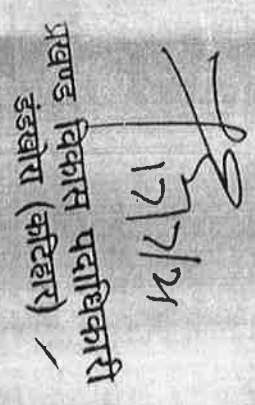 17/7/21
प्रखण्ड विकास पदाधिकारी
डंडखोरा (कटिहार)